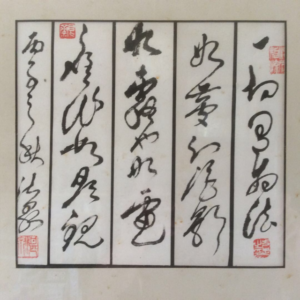 一切有為法
如夢幻泡影
如露亦如電
應作如是觀
丙子之秋